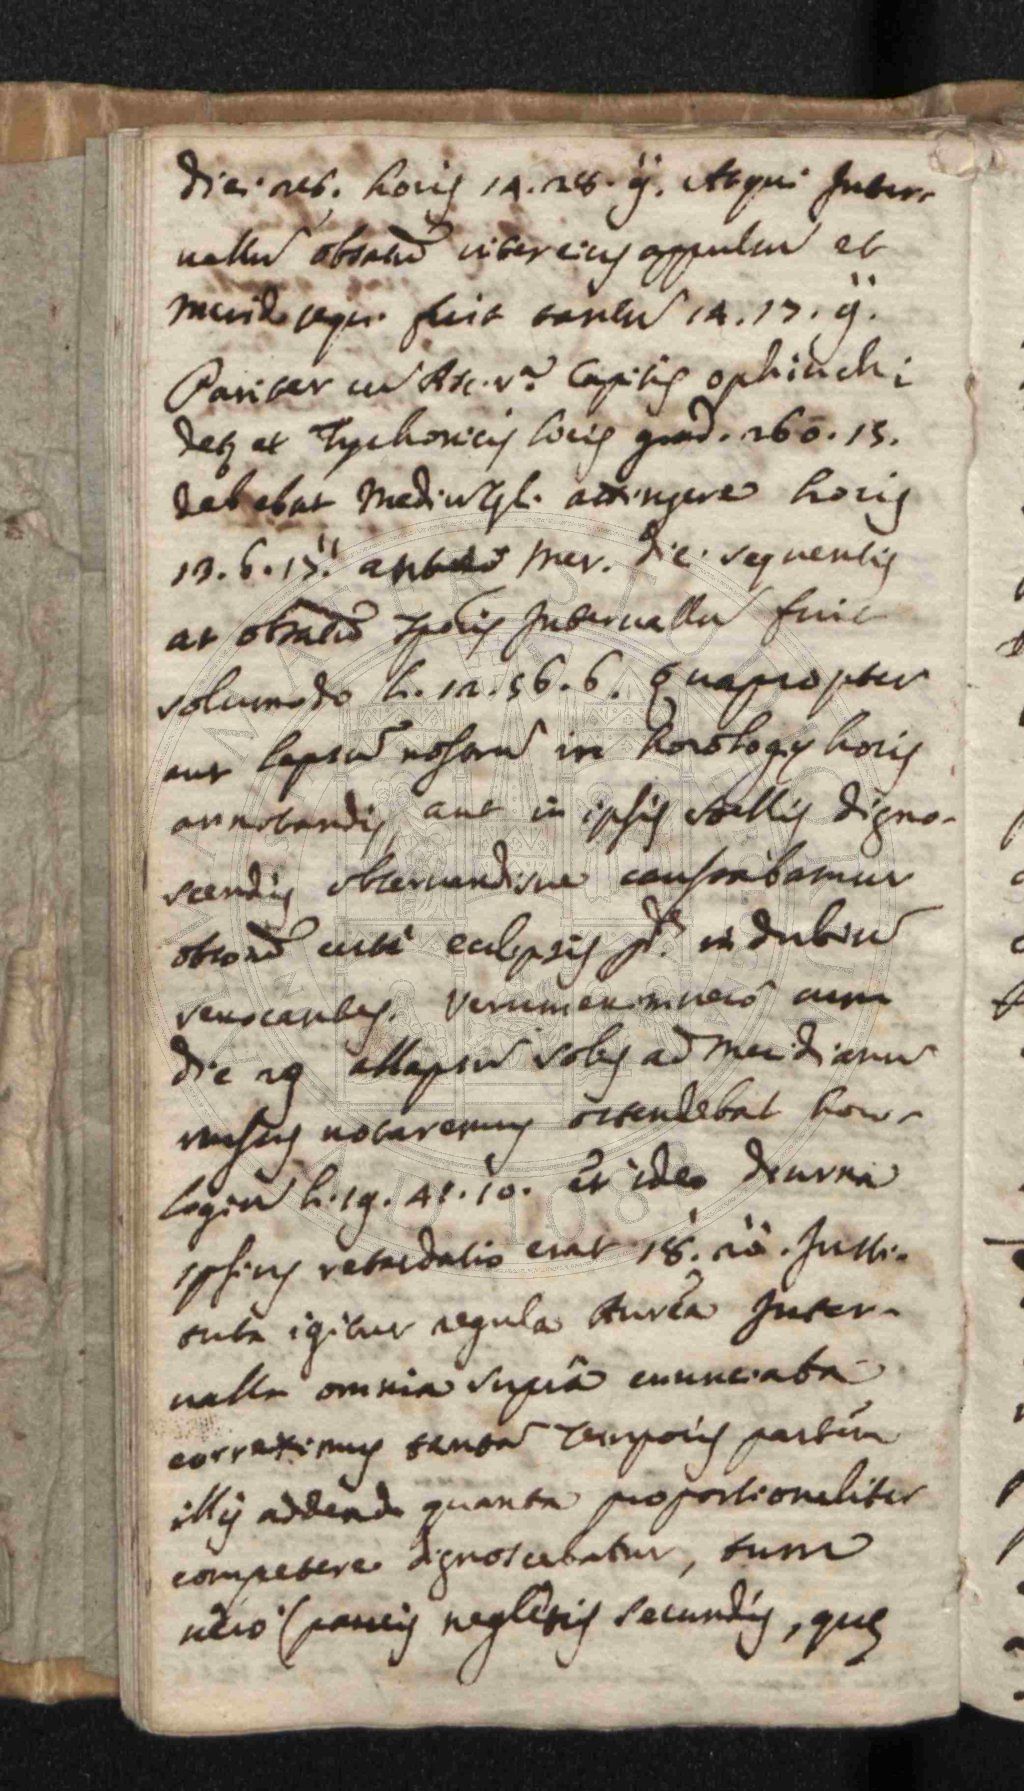 diei 26. horis 14. 28. ij. Atqui Inter-
vallũ obsatũ inter eius appulsũ et
Merid. sequ. fuit tantũ 14. 17. ij.
Pariter cũ Asc. rª. Capitis ophiuchi
detq et Tychonicis locis grad. 260. 15.
debebat Mediũ cęl. attingere horis
13. 6. 15. Mer. diei sequentis
at obsatũ Tpõris Intervallũ fuit
solumodo h. 12. 56. 6. Quapropter
aut lapsũ nostrũ in horologij horis
annotandis, aut in ipsis stellis digno-
scendis observandisve causabamur
obsonẽ eclipsis in dubiũ
revocantes. Verumenimverò cum
die 29 allapsũ solis ad Meridianũ
rursus notaremus ostendebat horo-
logiũ h. 19. 41. 10. et ideo diurna
ipsius retardatio erat 18. 20. Insti-
tuta igitur regula Aurea Inter-
valla omnia suprà enunciata
correximus tantã Temporis partem
illis addendo quanta proportionaliter
competere dignoscebatur, tum
verò (paucis neglectis secundis, quę